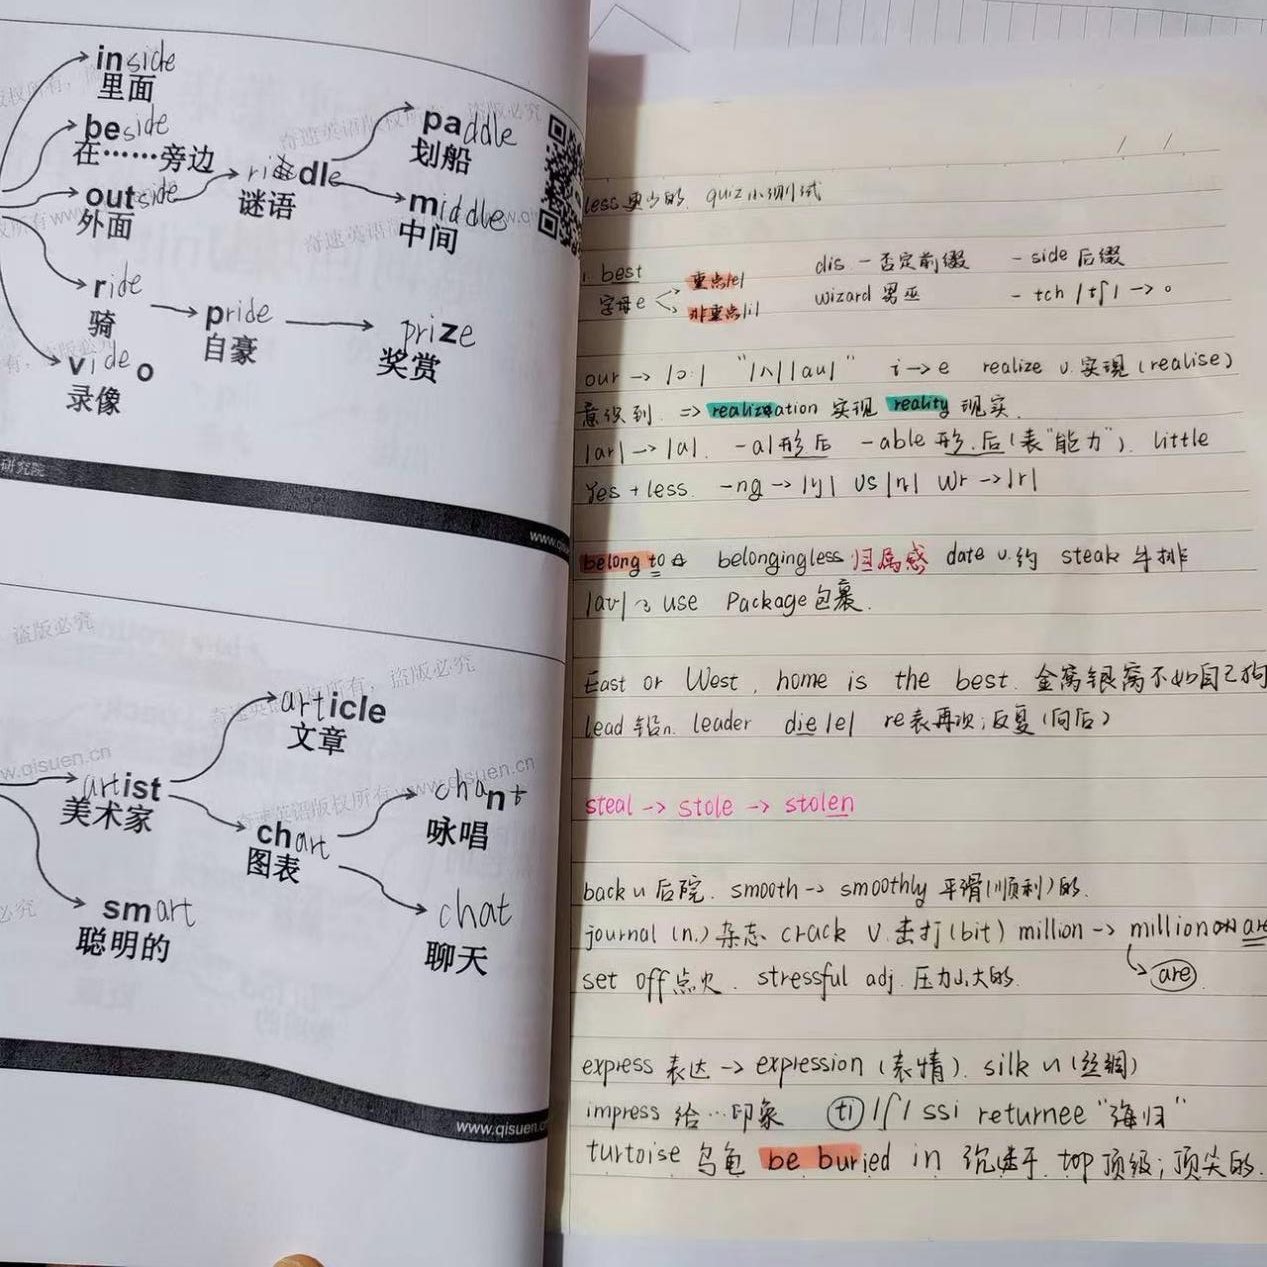 inside
里面
beside
在……旁边
outside
外面
riddle
谜语
paddle
划船
middle
中间
ride
骑
pride
自豪
prize
奖赏
video
录像
研究院
www.qis
盗版必究
article
文章
artist
美术家
chart
图表
chant
咏唱
chat
聊天
smart
聪明的
www.qisuen.cn
less 更少的. quiz 小测试
best dis - 否定前缀 - side 后缀
字母e 重点/e/ 非重点/i/ wizard 男巫 - tch /tʃ/ → 。
our → /ɔ:/ "/ʌ/ /au/" i → e realize v. 实现 (realise)
意识到. ⇒ realization 实现 reality 现实.
/ar/ → /a/. -al形后 -able形.后(表"能力"). little
Yes + less. -ng → /ŋ/ VS /n/ wr → /r/
belong to belongingless 归属感 date v.约 steak 牛排
use Package 包裹.
East or West, home is the best. 金窝银窝不如自己狗
lead 铅n. leader die /e/ re表再次;反复(向后)
steal → stole → stolen
back n 后院. smooth → smoothly 平滑(顺利)的.
journal (n.) 杂志 crack v.击打(bit) million → million are
set off 点火. stressful adj. 压力山大的. are
express 表达 → expression (表情). silk n (丝绸)
impress 给…印象 ti /ʃ/ ssi returnee "海归"
turtoise 乌龟 be buried in 沉迷于. top 顶级;顶尖的.